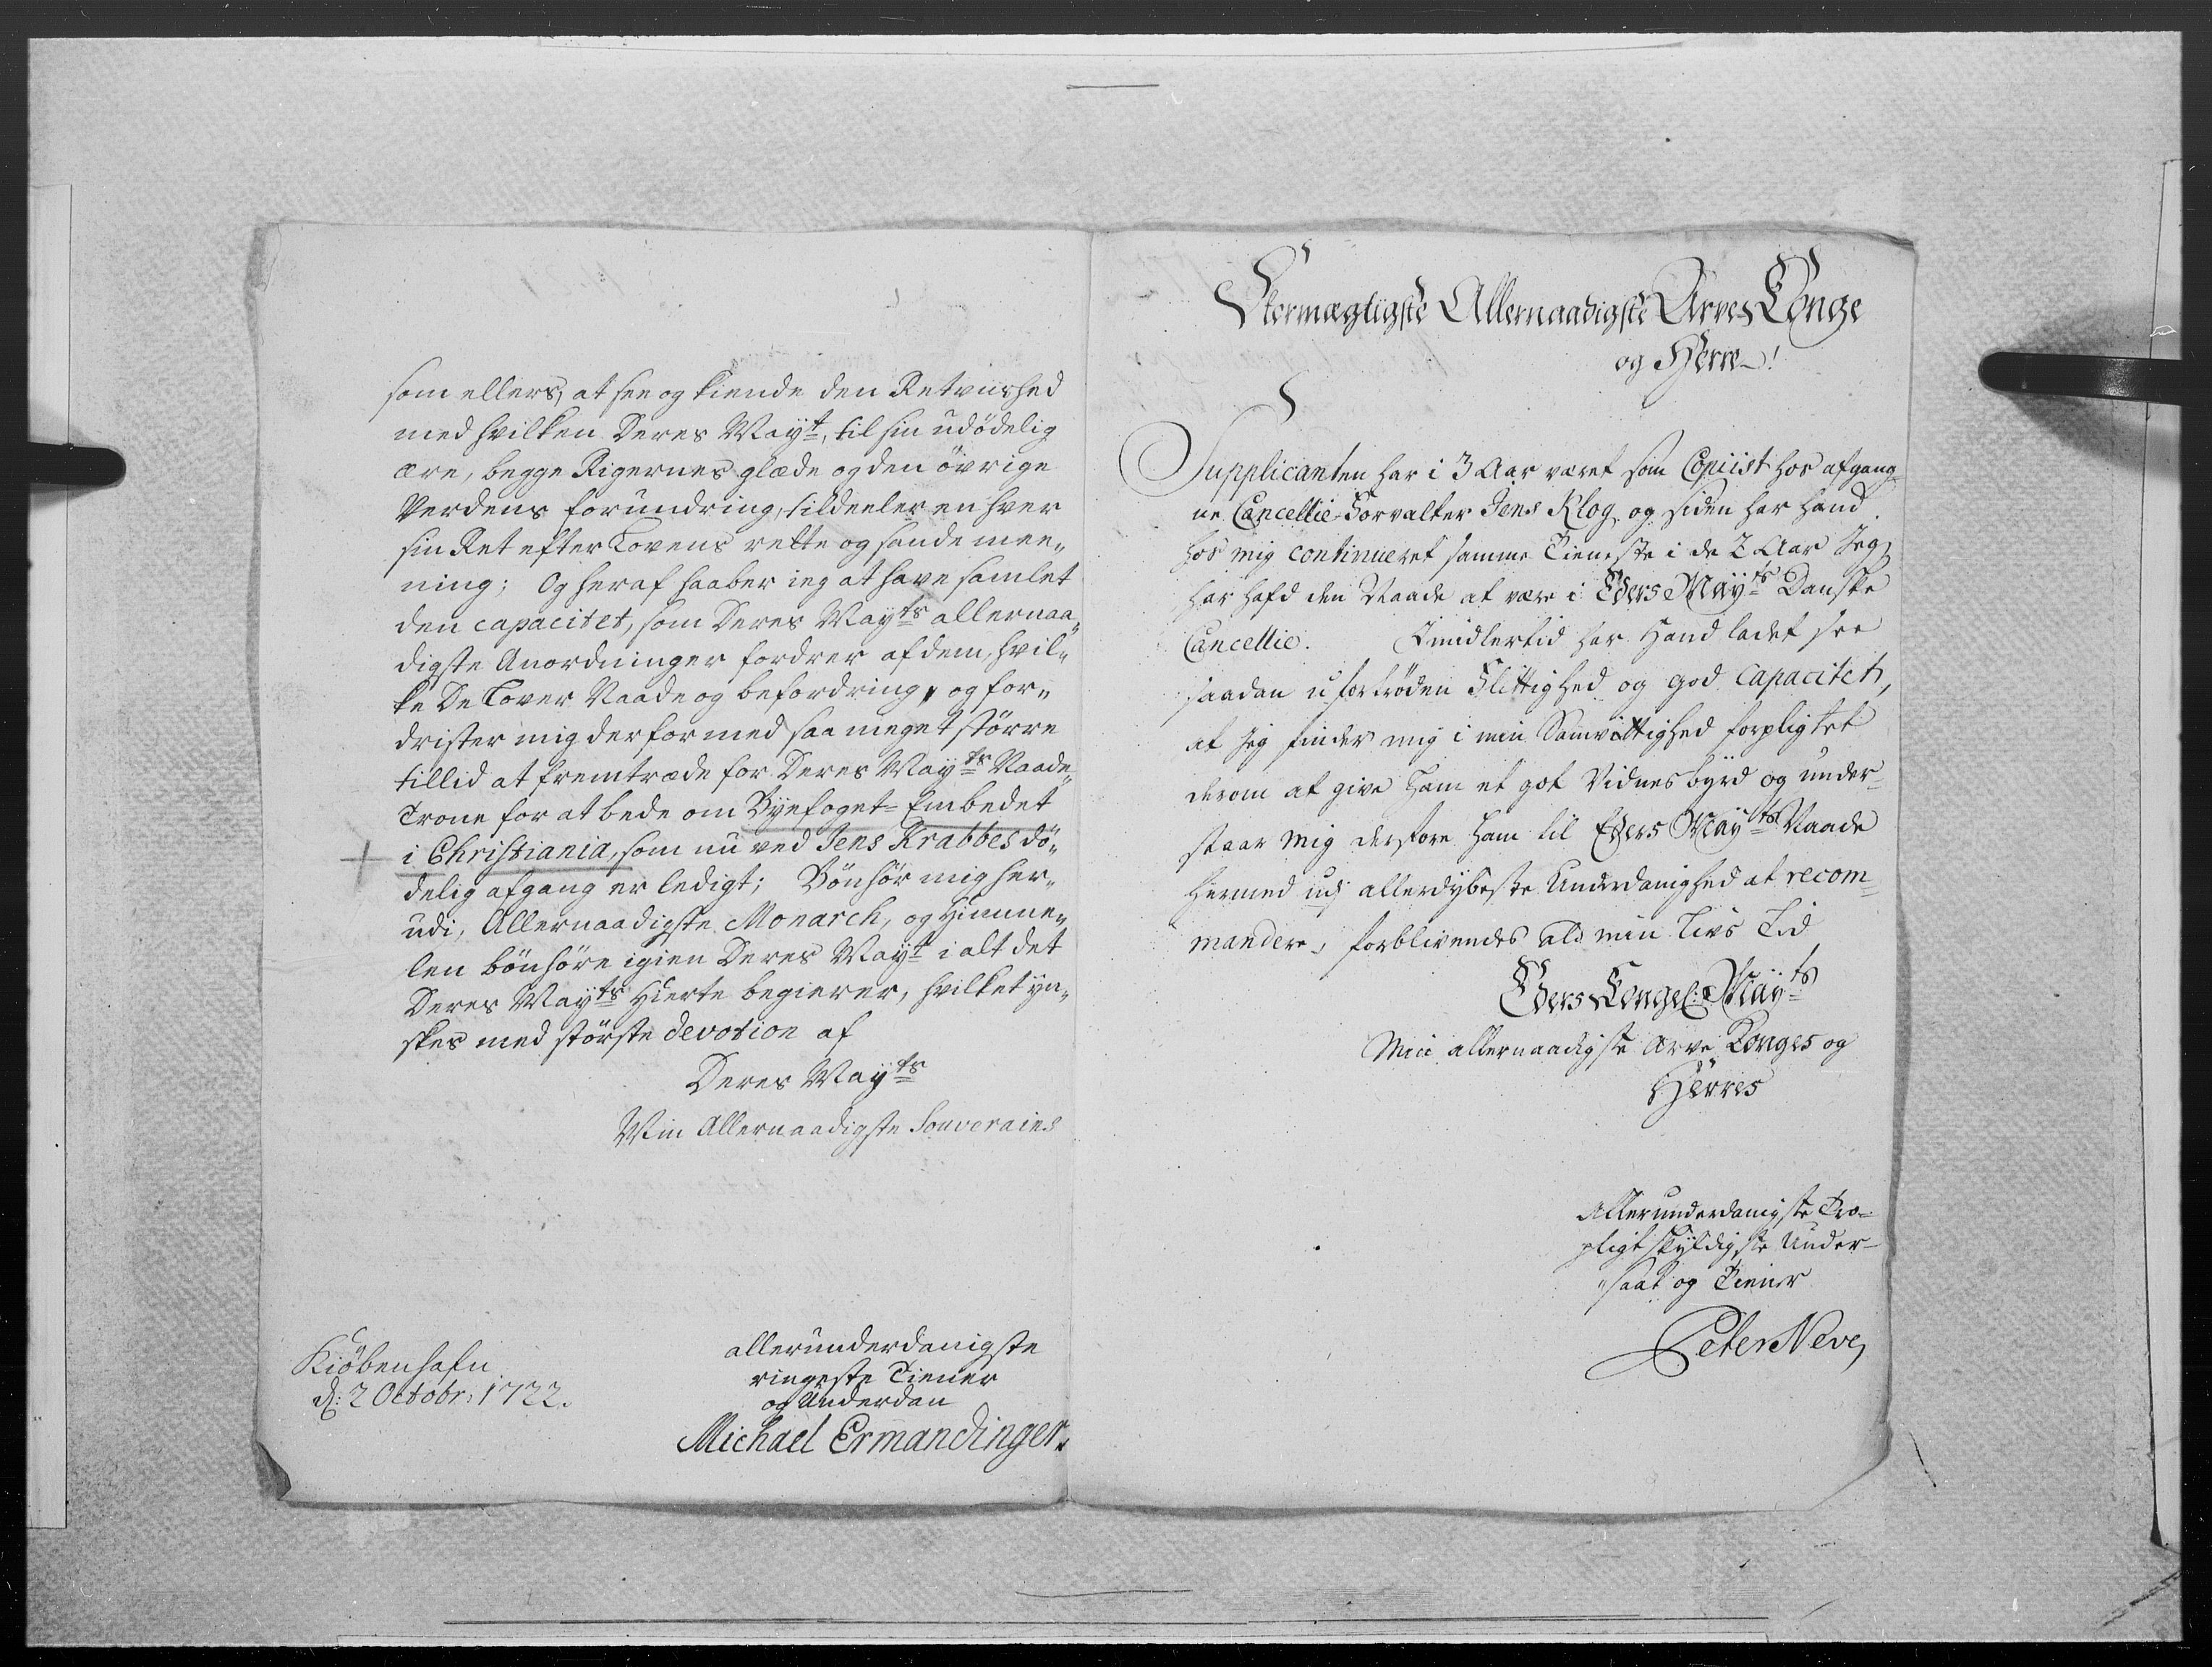 som ellers, at see og kiende den Retviished
med hvilken Deres Mayt, til sin udödelig
ære, begge Rigernes glæde og den övrige
Verdens forundring, tildeeler en hver
sin Ret efter Lovens rette og sande mee„
ning; Og heraf haaber ieg at have samlet
den capacitet, som Deres Mayts allernaa„
digste Anordninger fordrer af dem, hvil„
ke De Lover Naade og befordring, og for„
drister mig derfor med saa meget större
tillid at fremtræde for Deres Mayts Naade„
Trone for at bede om Byefoget-Embedet
i Christiania, som nu ved Jens Krabbes dö„
delig afgang er ledigt; Bönhör mig her„
udi, Allernaadigste Monarch, og Himme„
len bönhöre igien Deres Mayt i alt det
Deres Mayts Hierte begierer, hvilket yn„
skes med störste devotion af
Deres Mayts
Min Allernaadigste Souverains
Kiöbenhafn
d: 2 Octobr: 1722.
allerunderdanigste
ringeste Tiener
og Underdan
Michael Ermandinger.
Stormægtigste Allernaadigste Arve Konge
og Herre!
Supplicanten har i 3 Aar været som Copiist hos afgang„
ne Cancellie-Forvalter Jens Klog, og siden har hand
hos mig continueret samme Tieneste i de 2 Aar Jeg
har hafd den Naade at være i Eders Mayts Danske
Cancellie. Imidlertid har Hand ladet see
saadan ufortrøden Flittighed og god Capacitet,
at Jeg finder mig i min Samvittighed forpligtet
derom at give Ham et got Vidnesbyrd og under„
staar mig derfore Ham til Eders Mayts Naade
hermed udj allerdybeste Underdanighed at recom„
mandere, forblivendes ald min Livs Tid
Eders Kongel: Mayts
Min allernaadigste Arve Konges og
Herres
Allerunderdanigste Tro-
pligt skyldigste Under-
saat og Tiener
Peter Neve